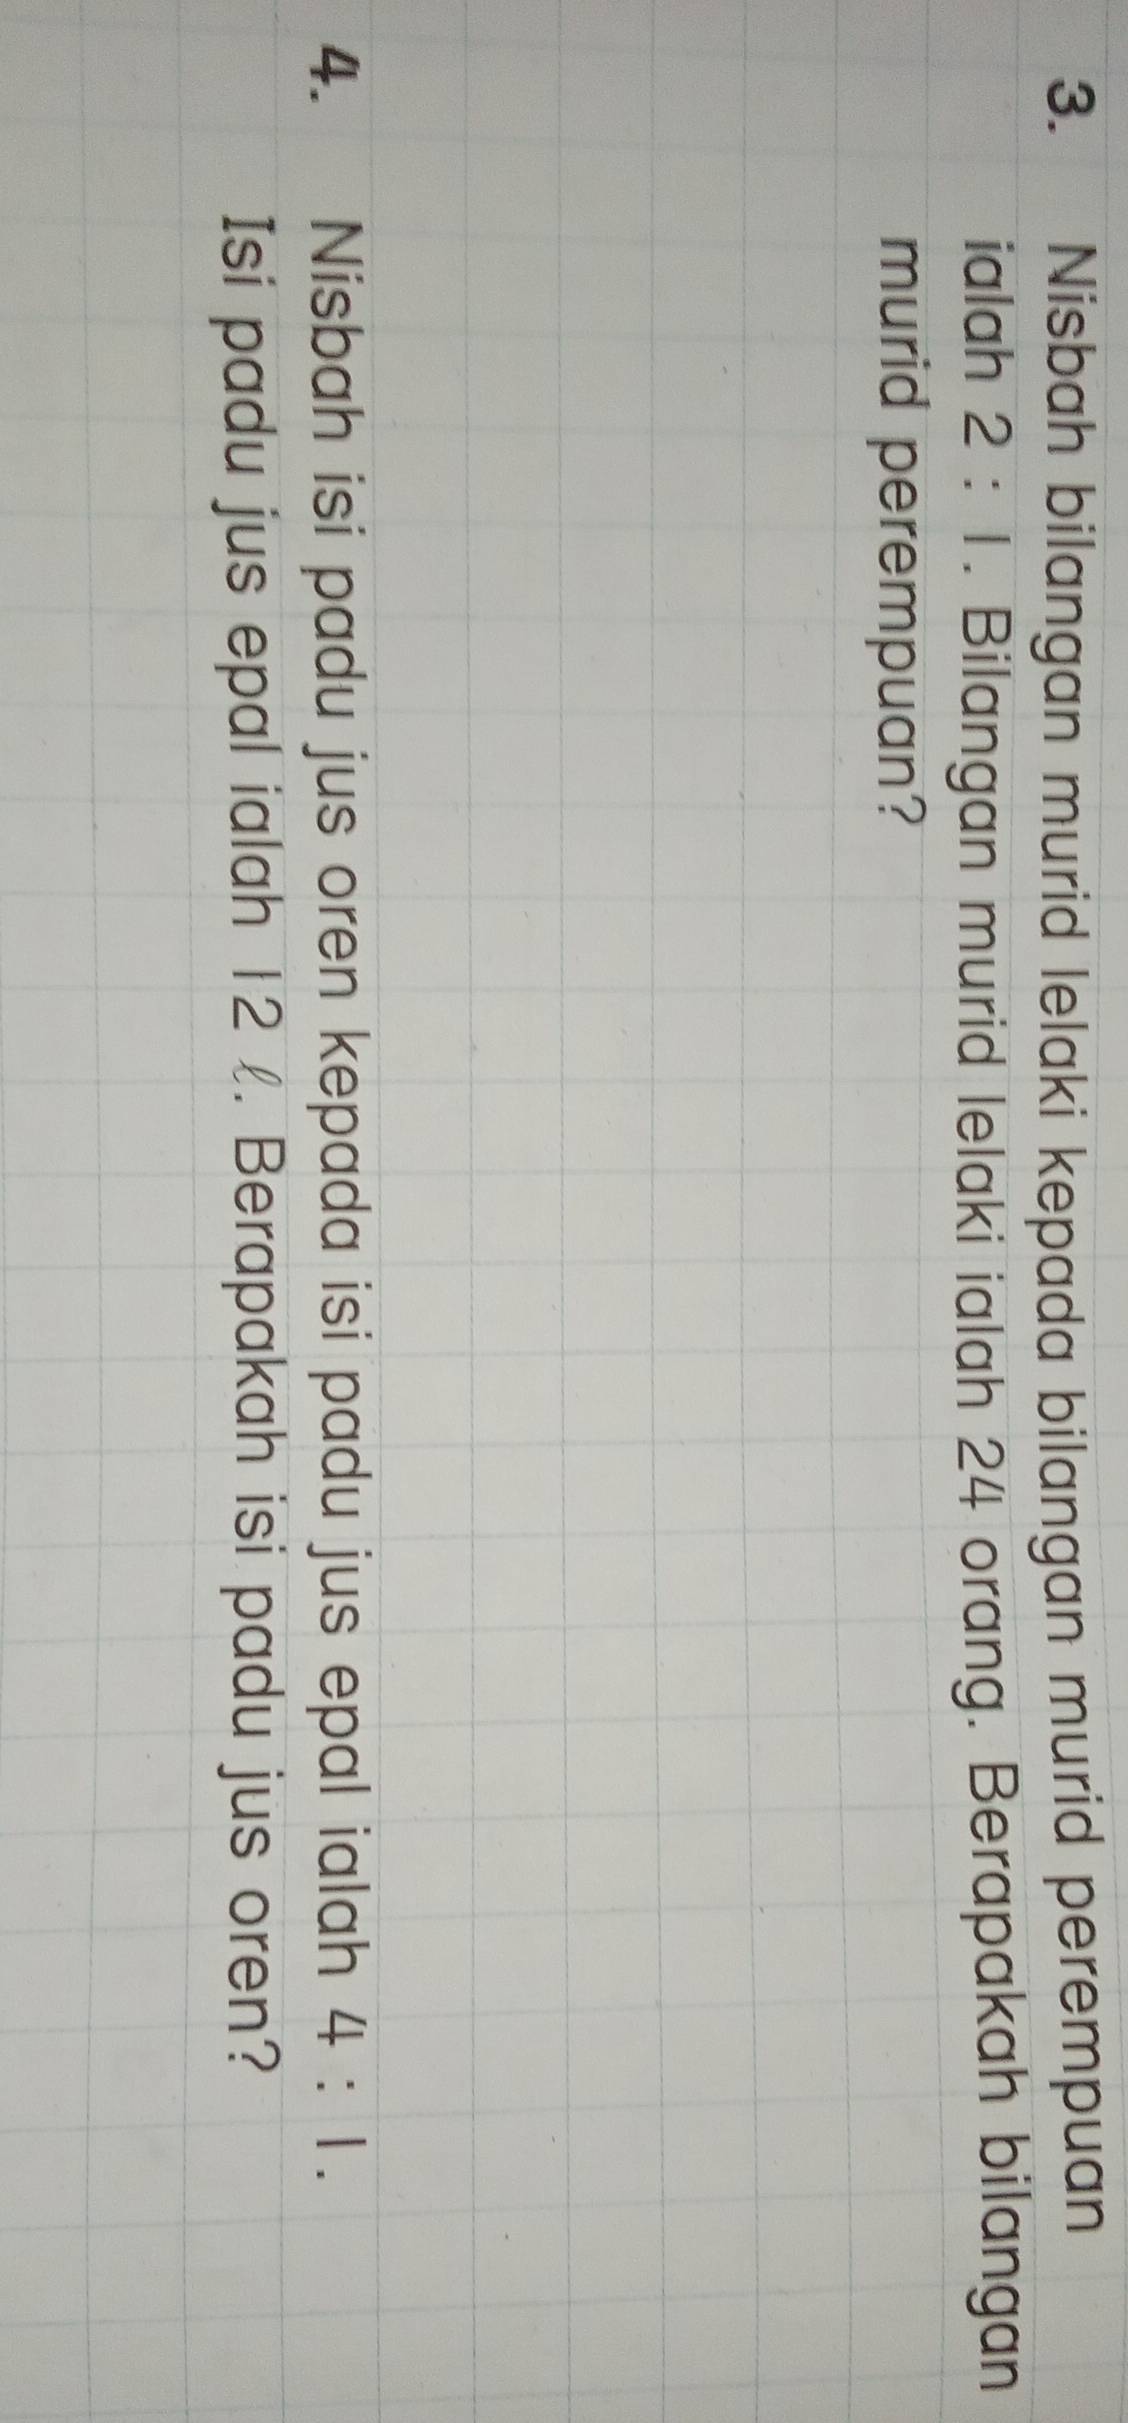 3. Nisbah bilangan murid lelaki kepada bilangan murid perempuan
ialah 2 : 1. Bilangan murid lelaki ialah 24 orang. Berapakah bilangan
murid perempuan?
4. Nisbah isi padu jus oren kepada isi padu jus epal ialah 4 : 1.
Isi padu jus epal ialah 12 ℓ. Berapakah isi padu jus oren?